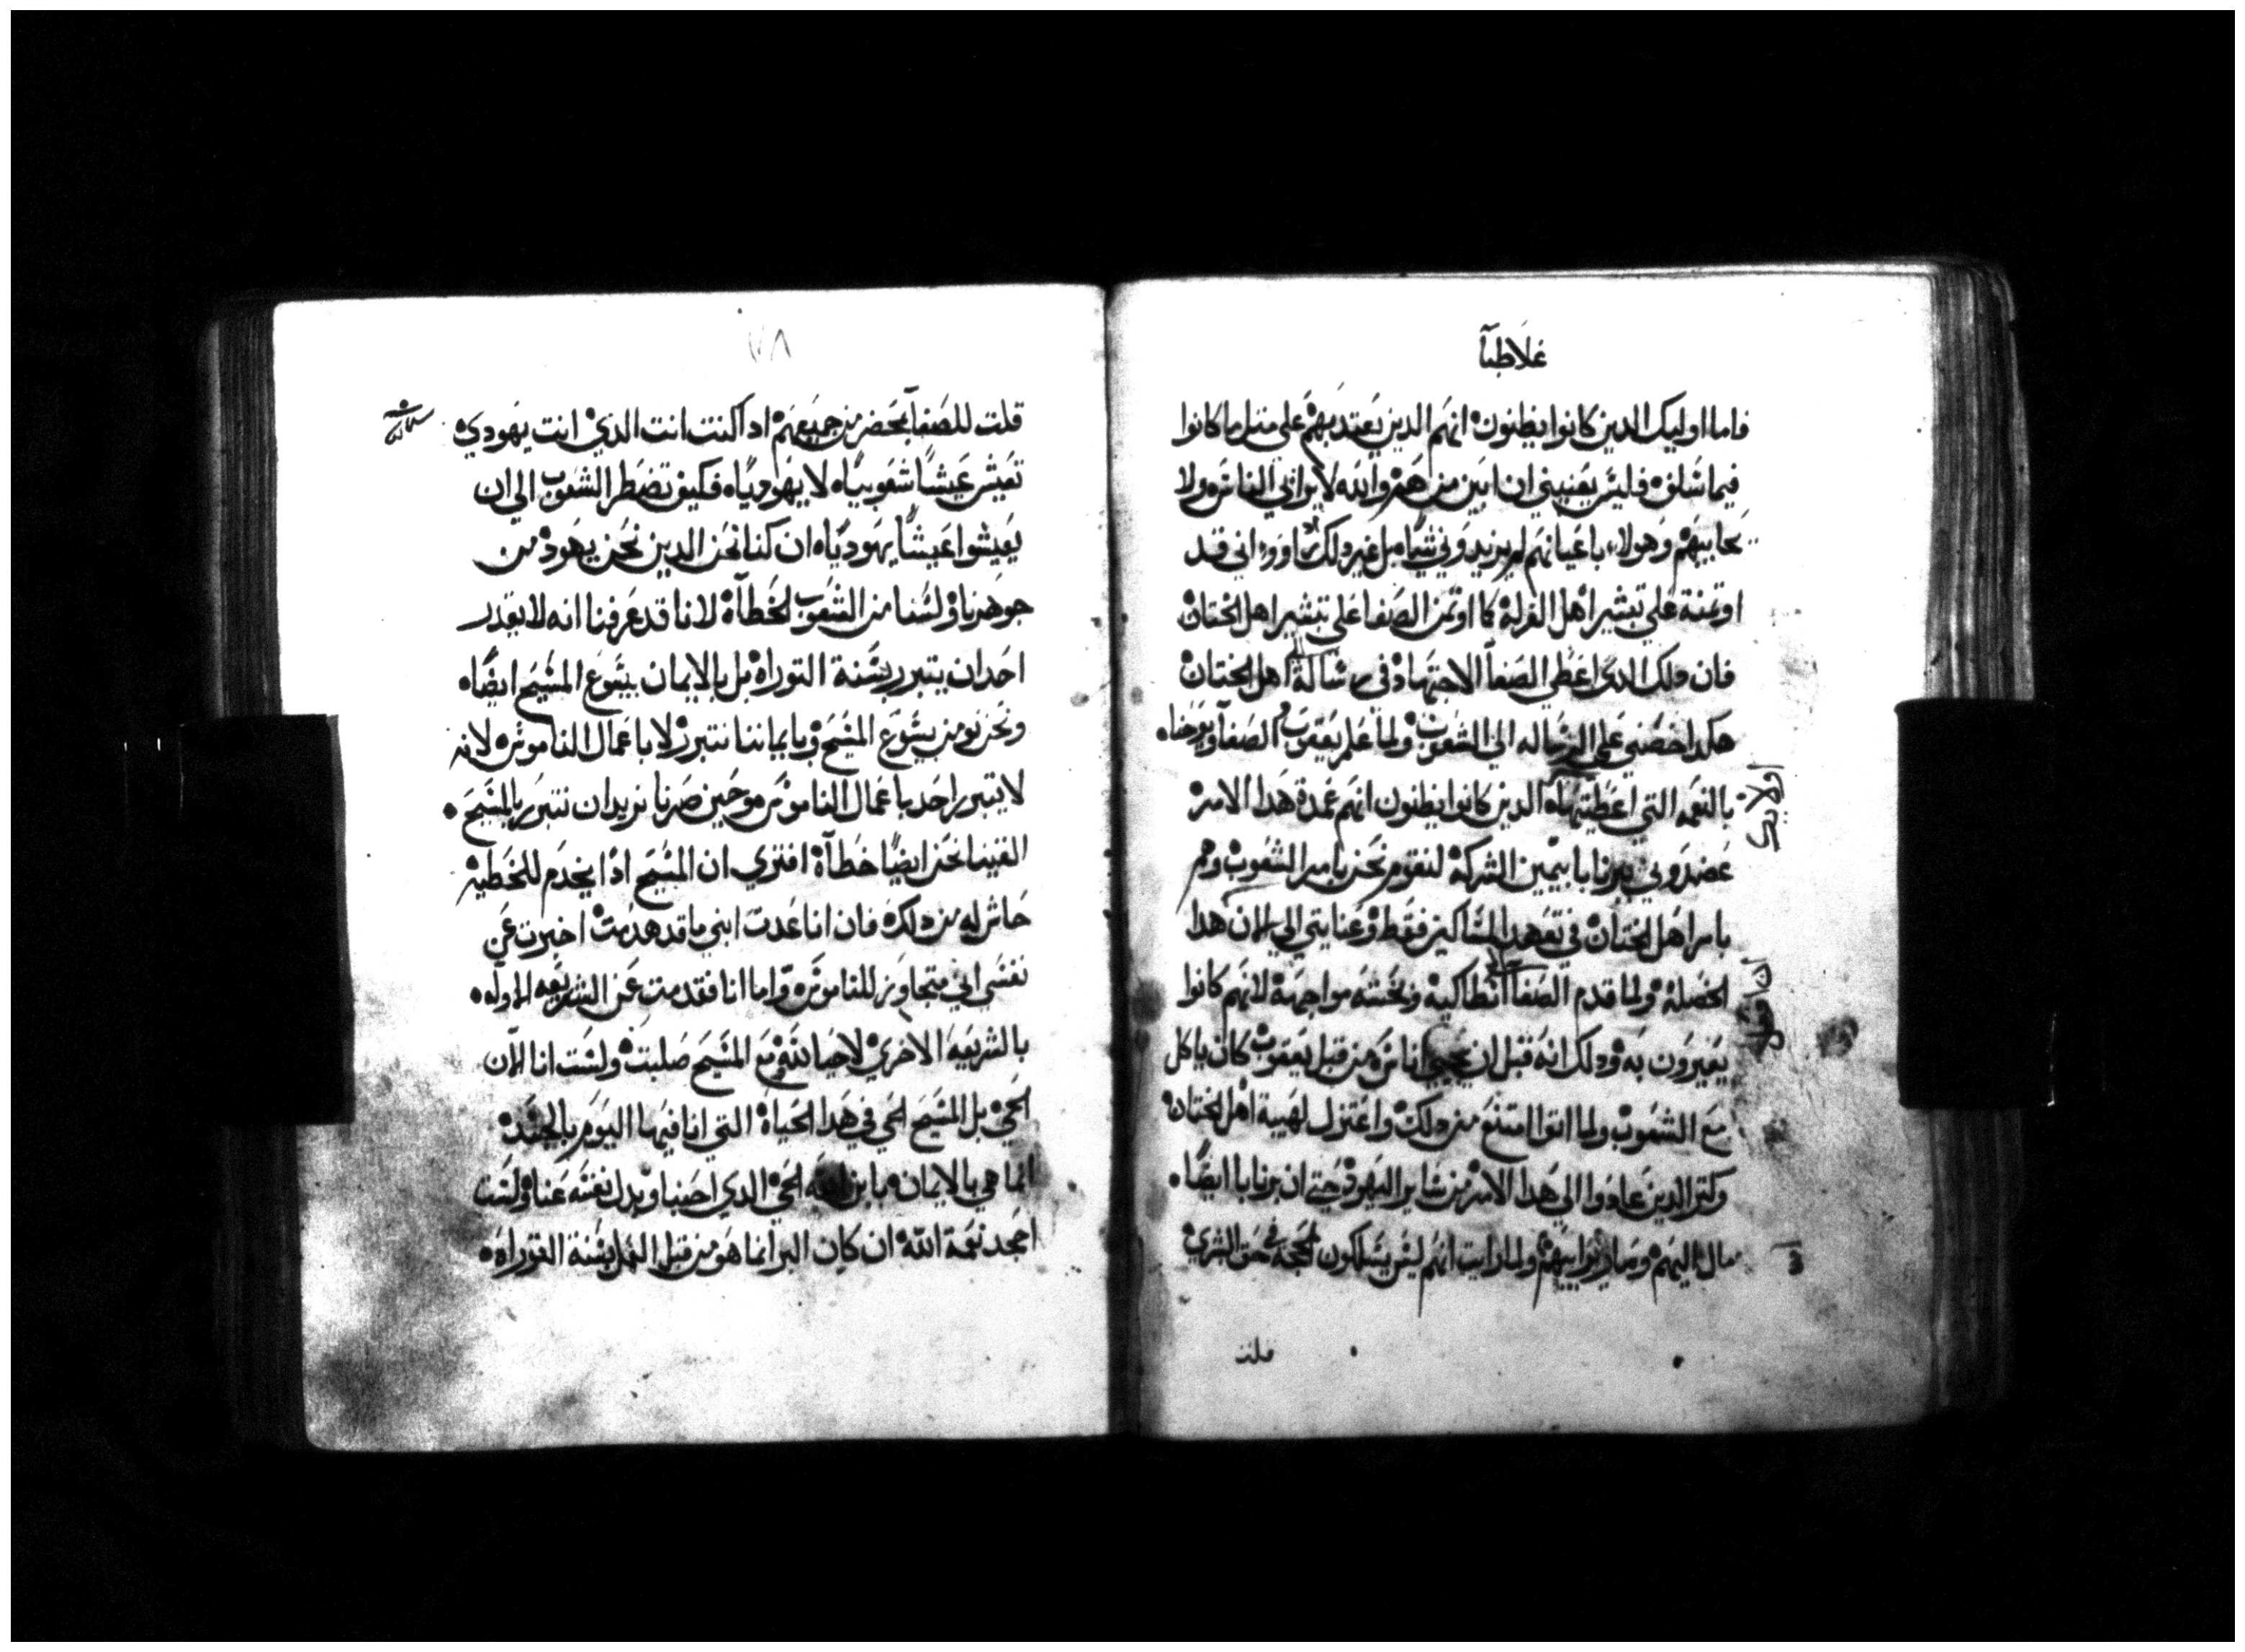 غلاطيا
فاما اوليك الدين كانوا يظنون انهم الدين يعتد بهم على مثل ما كانوا
فيما سلف فليس يعنيني ان ابين من هم والله لا يرائي الناس ولا
يحابيهم وهولاء باعيانهم لم يزيدوني شيا بل غير دلك راوو اني قد
اوتمنة على تبشير اهل الغرلة كما اوتمن الصفا على تبشير اهل الختان
فان دلك الدي اعطي الصفا الاجتهاد في رسالة اهل الختان
هكدا خصني على الرساله الى الشعوب ولما علم يعقوب الصفا ويوحنا
بالنعمه التي اعطيتها الدين كانوا يظنون انهم عمدة هدا الامر
عضدوني وبرنابا بيمين الشركة لنقوم نحن بامر الشعوب وهم
بامر اهل الختان في تعهد المساكين فقط وعنايتي الي الان هدا
الخصلة ولما قدم الصفا انطاكية وبخته مواجهة لانهم كانوا
يغيرون به ودلك انه قبل ان يجي اناس من قبل يعقوب كان ياكل
مع الشعوب ولما اتوا امتنع من دلك واعتزل لهيبة اهل الختان
وكثر الدين عادوا الي هدا الامر من ساير اليهود حتى ان برنابا ايضا
مال اليهم ولما رايت انهم ليس يسلكون المحجة في حق البشرى
قلت
٧٨
قلت للصفا بمحضر من جميعهم ادا كنت انت الدي انت يهودي
تعيش عيشا شعوبيا لا يهوديا فكيف تضطر الشعوب الي ان
يعيشوا عيشا يهوديا ان كنا نحن الدين نحن يهود من
جوهرنا ولسنا من الشعوب الخطاة لانا قد عرفنا انه لا يقدر
احد ان يتبرر بسنة التوراه بل بالايمان بيسوع المسيح ايضا
ونحن نومن بيسوع المسيح وبايماننا نتبرر لا باعمال الناموس لانه
لا يتبرر احد باعمال الناموس وحين صرنا نريد ان نتبرر بالمسيح
الفينا نحن ايضا خطاة افترى ان المسيح ادا يخدم للخطية
حاش له من دلك فان انا عدت ابني ما قد هدمت اخبرت عن
نفسي اني متجاوز للناموس واما انا فقد مت عن الشريعه الاوله
بالشريعه الاخرى لاحيا لله ومع المسيح صلبت ولست انا الان
الحي بل المسيح الحي في هدا الحياة التي انا فيها اليوم بالجسد
انما هي بالايمان بابن الله الحي الدي احبنا وبدل نفسه عنا ولست
اجحد نعمة الله ان كان البر انما هو من قبل العمل بسنة التوراه